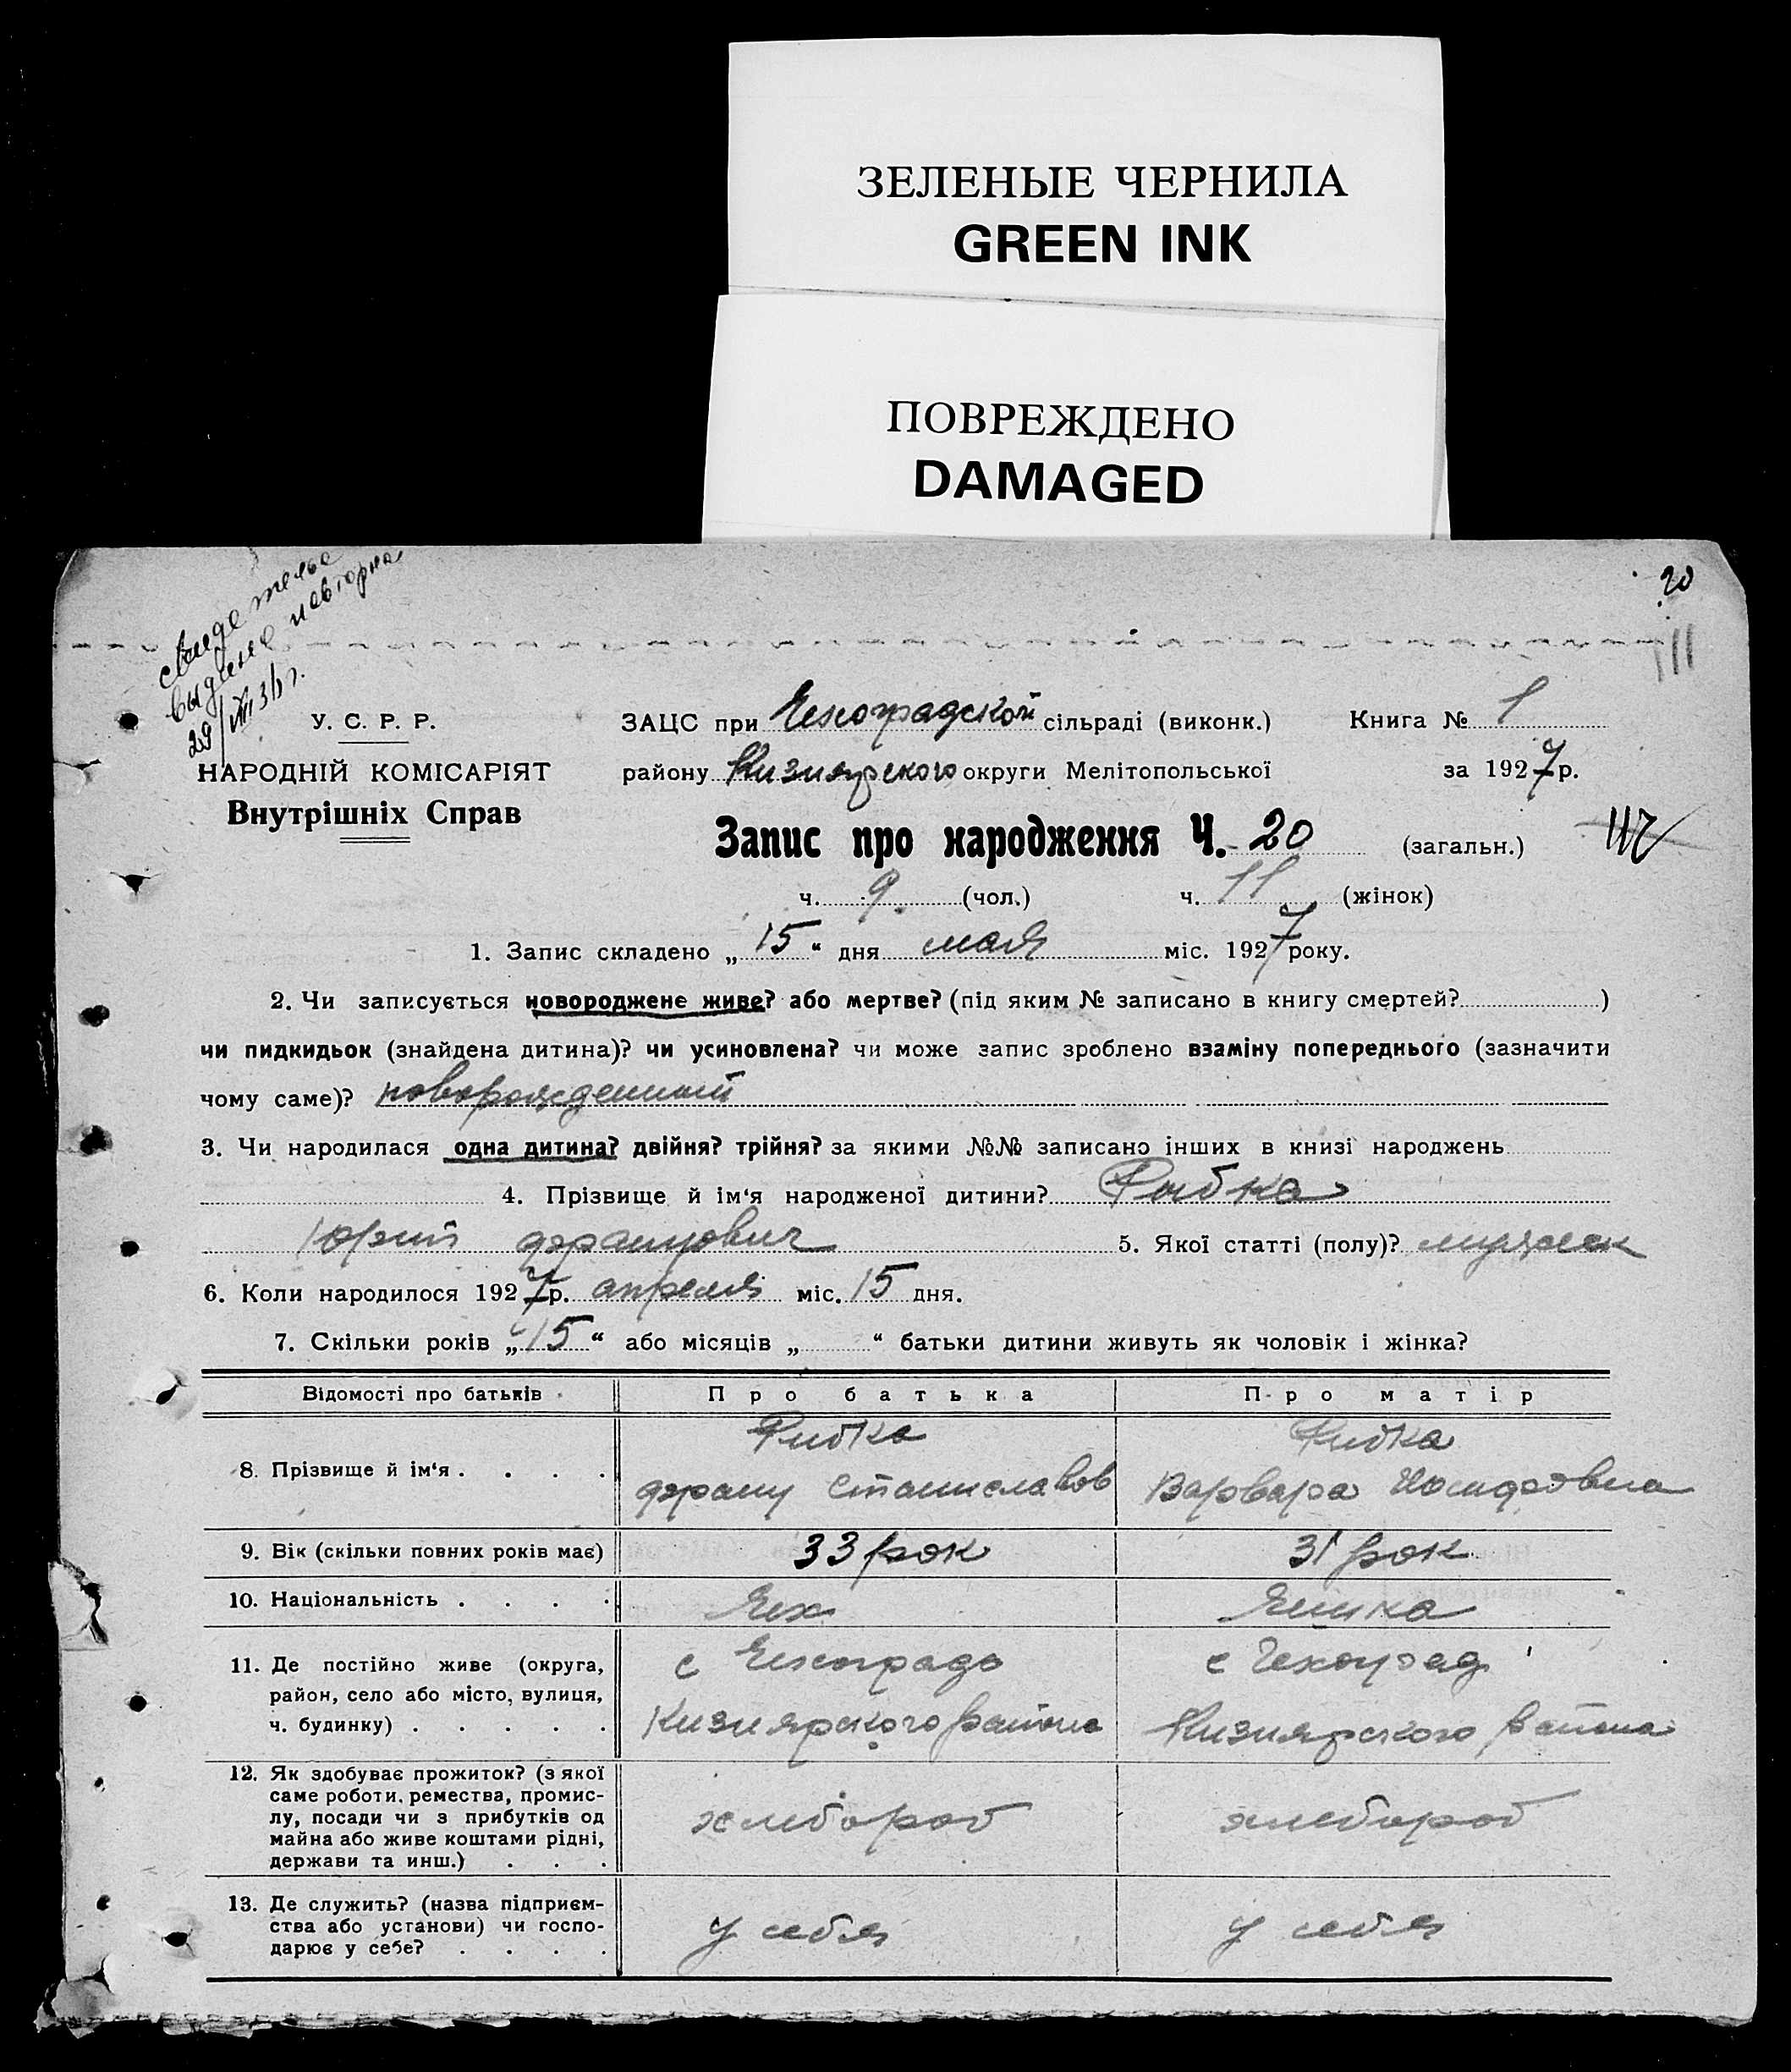 ЗЕЛЕНЫЕ ЧЕРНИЛА
GREEN INK
ПОВРЕЖДЕНО
DAMAGED
20
свидетельс
выдано повторно
29/VIII 31 г.
У. С. Р. Р.
НАРОДНІЙ КОМІСАРІЯТ
Внутрішніх Справ
ЗАЦС при Чехоградской сільраді (виконк.) Книга № 1
району Кизиярского округи Мелітопольської за 1927 р.
Запис про народження Ч. 20 (загальн.)
ч. 9 (чол.) ч. 11 (жінок)
1. Запис складено „ 15 “ дня мая міс. 1927 року.
2. Чи записується новороджене живе? або мертве? (під яким № записано в книгу смертей? )
чи пидкидьок (знайдена дитина)? чи усиновлена? чи може запис зроблено взаміну попереднього (зазначити
чому саме)? новорожденный
3. Чи народилася одна дитина? двійня? трійня? за якими №№ записано інших в книзі народжень
4. Прізвище й ім‘я народженої дитини? Рыбка
Юрий Францович 5. Якої статті (полу)? мужеск
6. Коли народилося 1927 р. апреля міс. 15 дня.
7. Скільки років „ 15 “ або місяців „ “ батьки дитини живуть як чоловік і жінка?
Відомості про батьків Про батька Про матір
8. Прізвище й ім‘я . . . . Рибка Рибка
Франц Станиславов Варвара Иосифовна
9. Вік (скільки повних років має) 33 рок 31 рок
10. Національність . . . . Чех Чешка
11. Де постійно живе (округа, с Чехограда с Чехоград
район, село або місто, вулиця,
ч. будинку) . . . . . Кизиярского района Кизиярского района
12. Як здобуває прожиток? (з якої
саме роботи, ремества, промис-
лу, посади чи з прибутків од хлебороб хлебороб
майна або живе коштами рідні,
держави та инш.) . . .
13. Де служить? (назва підприєм-
ства або установи) чи госпо- у себя у себя
дарює у себе? . . . .